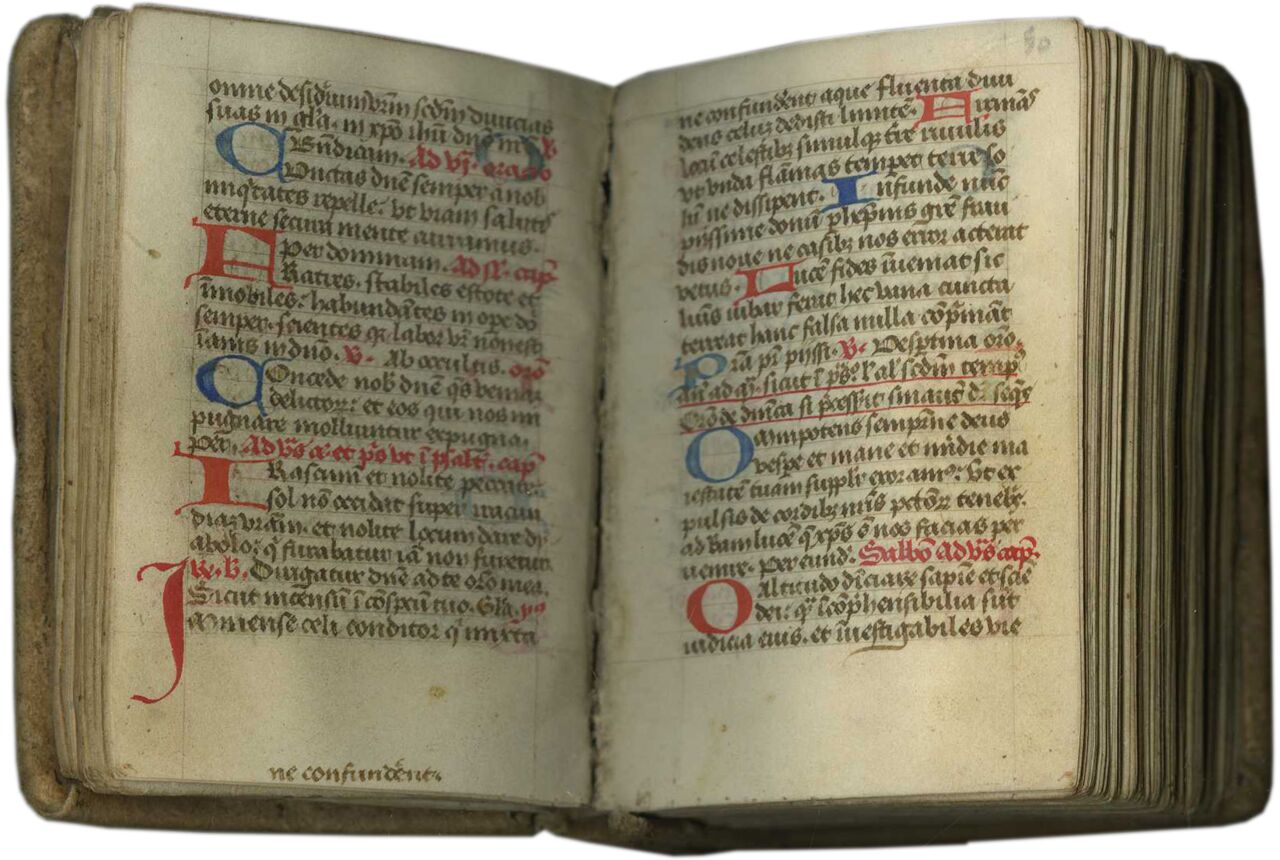 omne desideriu vrm scdm diuicias
suas in gla. in xpo ihu dno
Bndicam. Ad vj. oracio
Cunctas dne semper a nob
iniqtates repelle. vt viam salutis
eterne securi mente curramus.
Per dominum. Ad cap
Fratres. stabiles estote et
imobiles. habundates in ope do
semper. scientes q labor vr non est
inanis in dno. V. Ab occultis. oro
Concede nob dne qs veniaz
delictor: et eos qui nos im
pugnare molliuntur expugna.
Per. cap
Irascimi et nolite peccare.
sol no occidat super iracun
diaz vram. et nolite locum dare di
abolo. q furabatur ia non furetur.
V. Dirigatur dne ad te oro mea.
Sicut incensu i cospcu tuo. Gla. yp
Inmense celi conditor q mixta
ne confundent.
ne confundent aque fluenta diui
dens celuz dedisti limite. Firmas
locu celestibz simulqz tre riuulis
vt vnda flamas temperet terre so
lu ne dissipent. Infunde nuc
piissime donu phepnis gre frau
dis noue ne casibz nos error atterat
vetus. Luce fides iueniat sic
luis iubar ferat hec vana cuncta
terreat hanc falsa nulla coprimat
Pra pr piissi. V. Vespertina oro.
an ad sicut i ps:
Oro de dnica si
Omnipotens sempitne deus
vespe et mane et midie ma
iestate tuam supplir exoram: Ut ex
pulsis de cordibz nris pctor tenebr.
ad vam luce q xps e nos facias per
uenire. Per eund. Sabbo ad vs cap.
O altitudo diciaru sapie et scie
dei. q icophensibilia sut
iudicia eius. et iuestigabiles vie